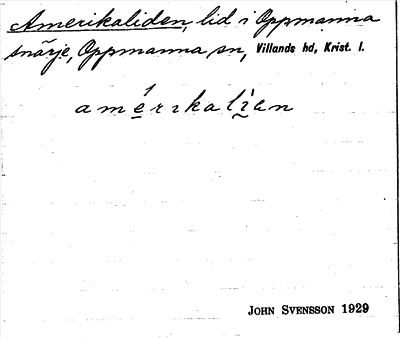 Amerikaliden, lid i Oppmanna
snärje, Oppmanna sn, Villands hd, Krist. l.
amérikalìen
JOHN SVENSSON 1929